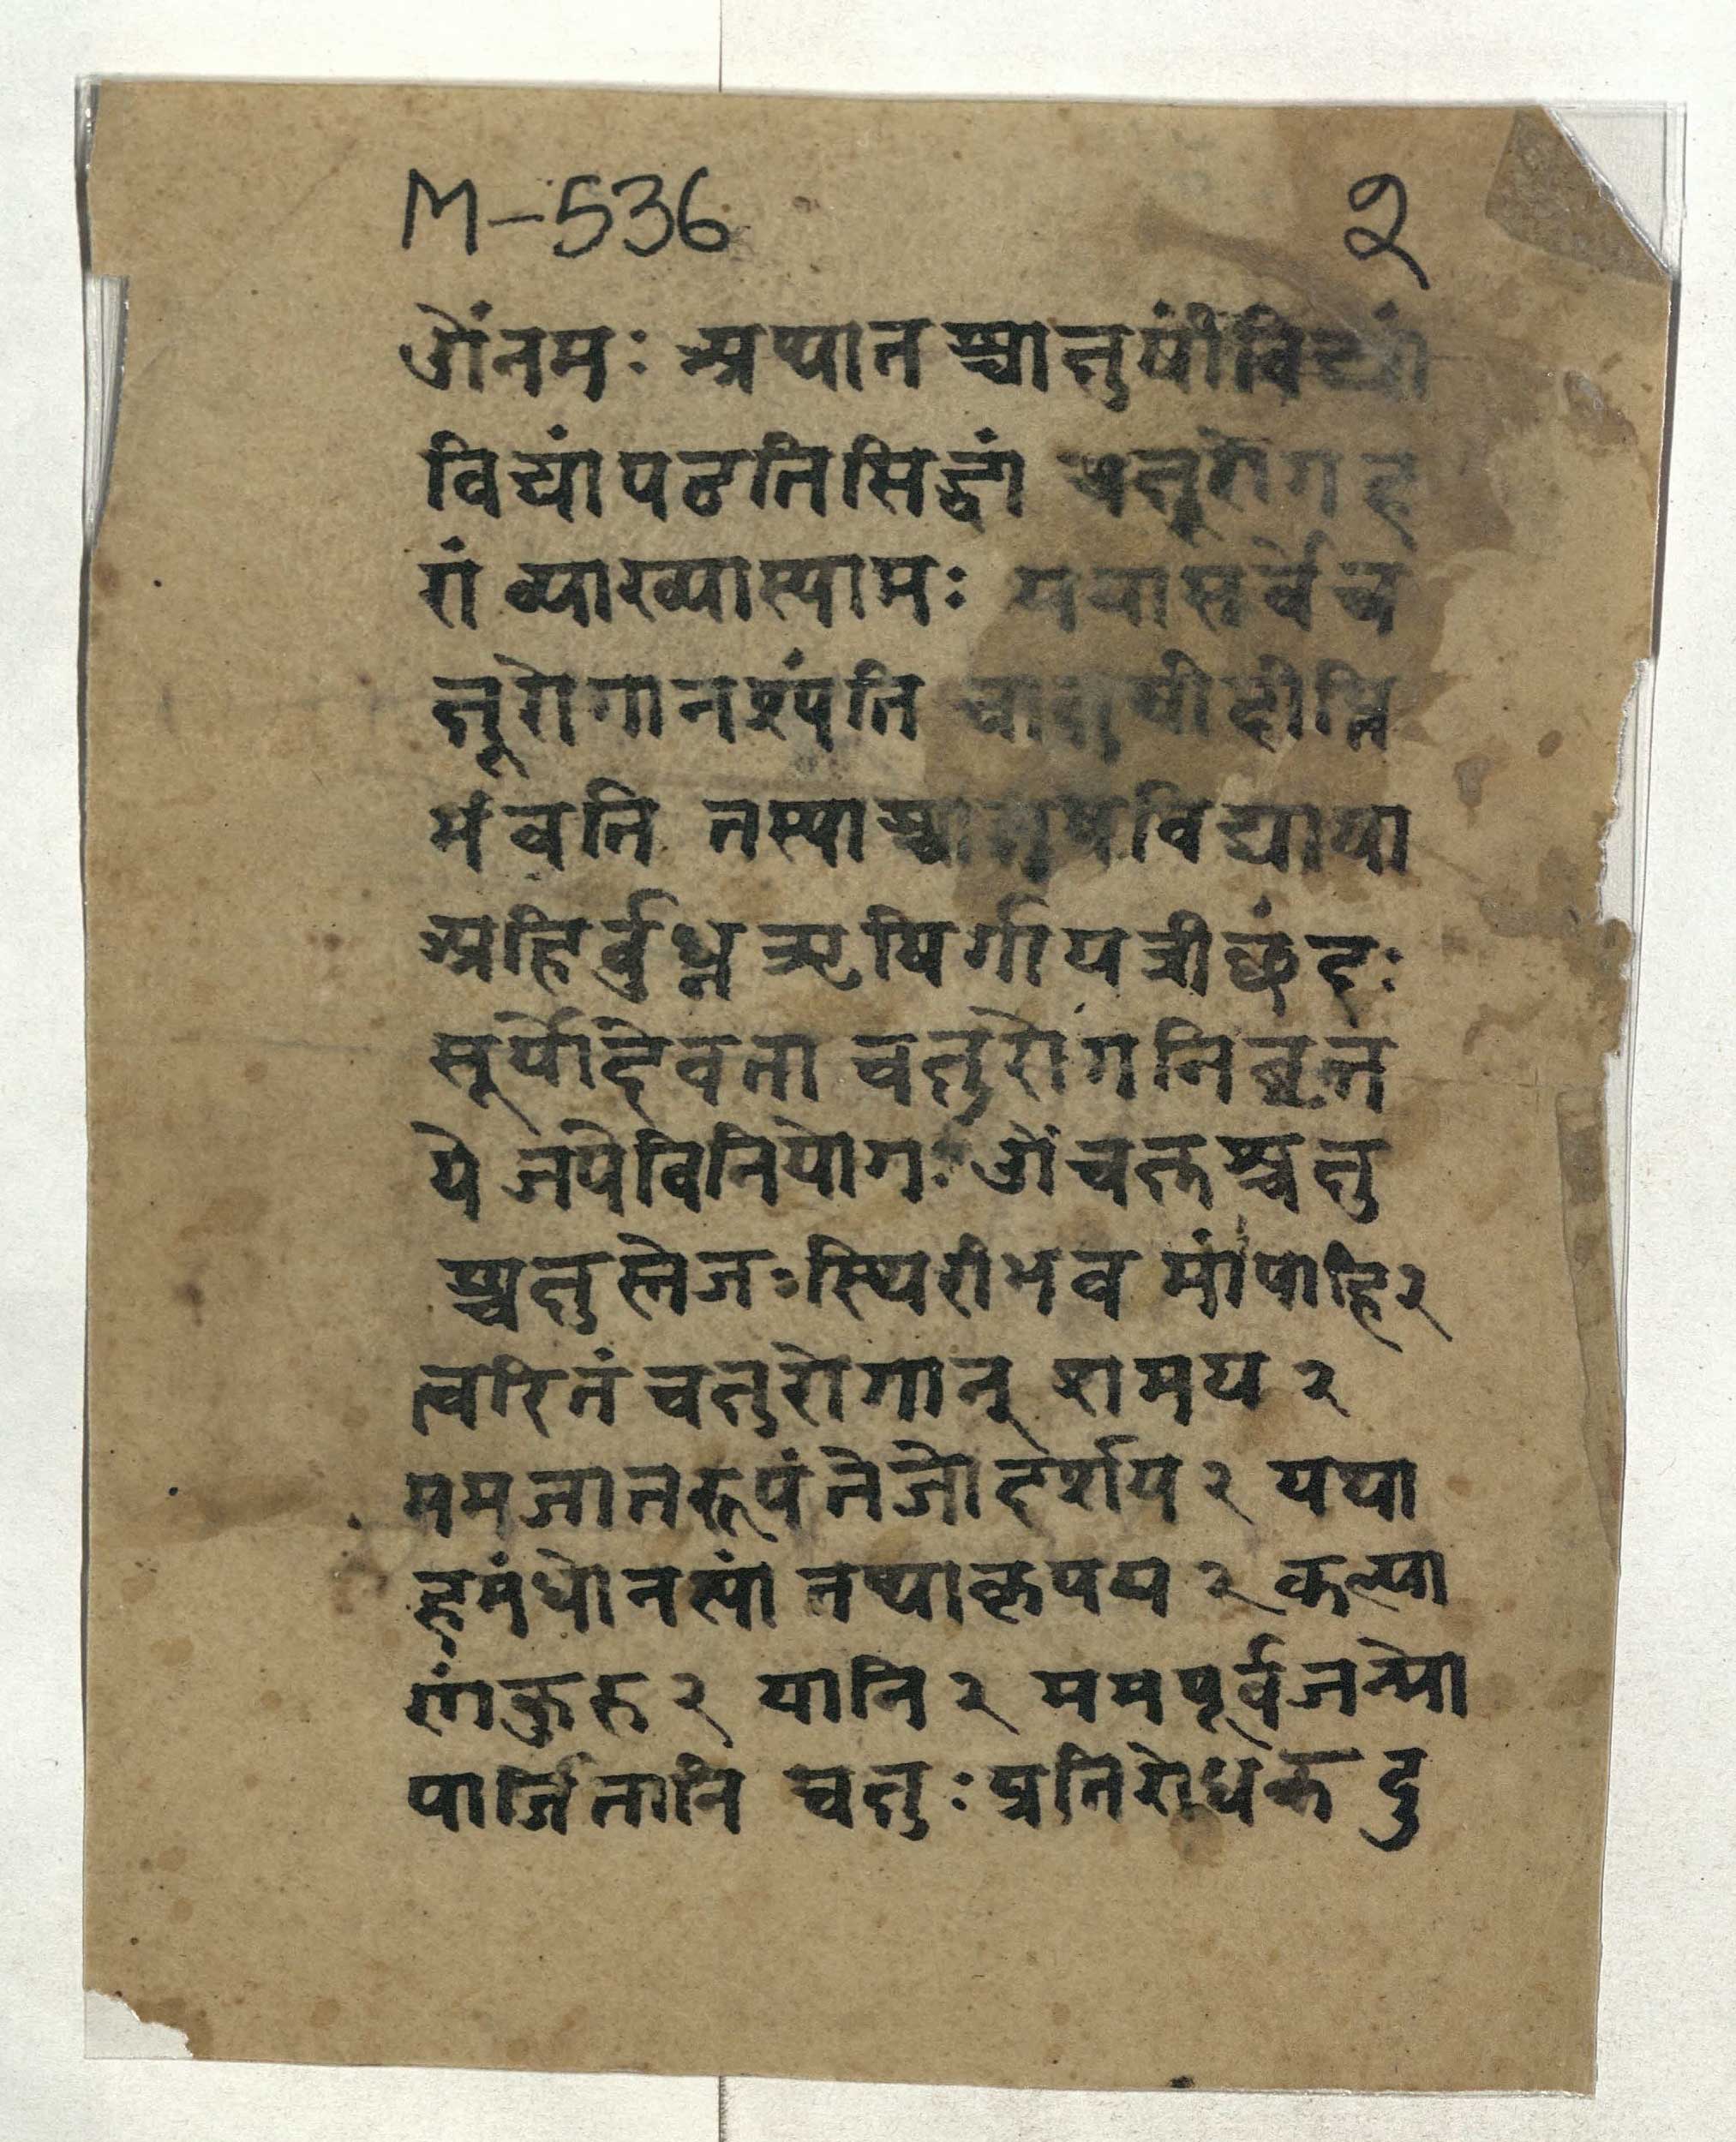 M-536 २
ओंनमः अथातश्चाक्षुषींविद्यां
विद्यांपठतिसिद्धां चक्षूरोगह
रां व्याख्यास्यामः यथासर्वेच
क्षूरोगानश्यंति चाक्षुषीदीप्ति
र्भवति तस्याश्चाक्षुषविद्याया
अहिर्बुध्न ऋषिर्गायत्रीछंदः
सूर्योदेवता चक्षुरोगनिवृत्त
ये जपेविनियोगः ओंचक्षश्चक्षु
श्चक्षुस्तेजःस्थिरीभव मांपाहि२
त्वरितं चक्षुरोगान् शमय २
ममजातरूपंतेजोदर्शय२ यथा
हमंधोनस्यां तथाकल्पय २ कल्या
णंकुरु२ यानि२ ममपूर्वजन्मो
पार्जितानि चक्षुःप्रतिरोधक दु